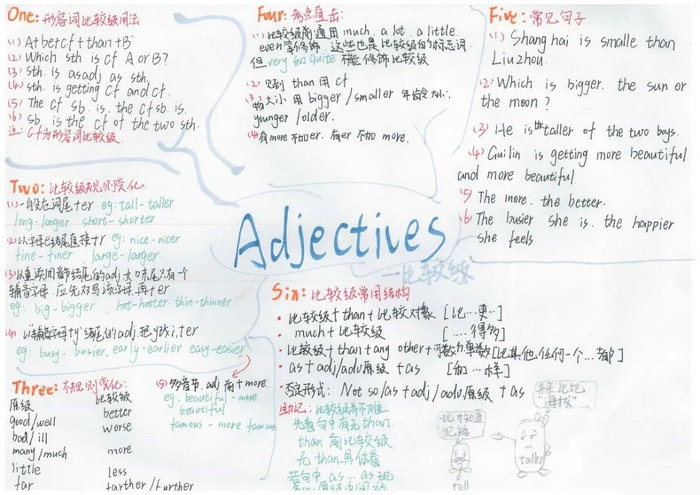 One: 形容词比较级用法
(1) A+be+cf+than+B
(2) Which sth is cf A or B?
(3) sth. is as adj as sth.
(4) sth. is getting cf and cf.
(5) The cf sb. is. the cf sb is.
(6) sb. is the cf of the two sth.
注: cf为形容词比较级.
Two: 比较级规则变化
(1) 一般在词尾+er eg: tall-taller
long-longer short-shorter
(2) 以字母e结尾直接+r eg: nice-nicer
fine-finer large-larger
(3) 以重读闭音节结尾的adj 末尾只有一个
辅音字母 应先双写该字母再+er
eg: big-bigger . hot-hotter. thin-thinner
(4) 以辅音字母+y结尾的adj. 把y改i,+er
eg: busy- busier. early-earlier easy-easier
Three: 不规则变化:
原级 比较级
good/well better
bad/ill worse
many/much more
little less
far farther/further
(5) 多音节 adj 前+more.
eg: beautiful - more
beautiful
famous - more famous
Four: 考点直击:
(1) 比较级前通用 much, a lot, a little
even等修饰, 这些也是比较级的标志词
但 very so quite 不能修饰比较级
(2) 见到 than 用 cf
(3) 大小 用 bigger/smaller 年龄大小:
younger /older.
(4) 有more不加er. 有er 不加 more.
Adjectives
一比较级
Five: 常见句子
(1) Shanghai is smalle than
Liuzhou.
(2) Which is bigger. the sun or
the moon?
(3) He is the taller of the two boys.
(4) Guilin is getting more beautiful
and more beautiful
(5) The more. the better.
(6) The busier she is. the happier
she feels
Six: 比较级常用结构
• 比较级+than+比较对象 [比…更…]
• much+比较级 [……得多]
• 比较级+than+any other+可数n单数 [比其他任何一个…都]
• as+adj/adv原级+as [和…一样]
• 否定形式: Not so/as+adj/adv原级+as
助记: 比较级并不难
先看句中有无than.
than 前比较级
无 than 具体看
若句中 as … as 现
tall
taller